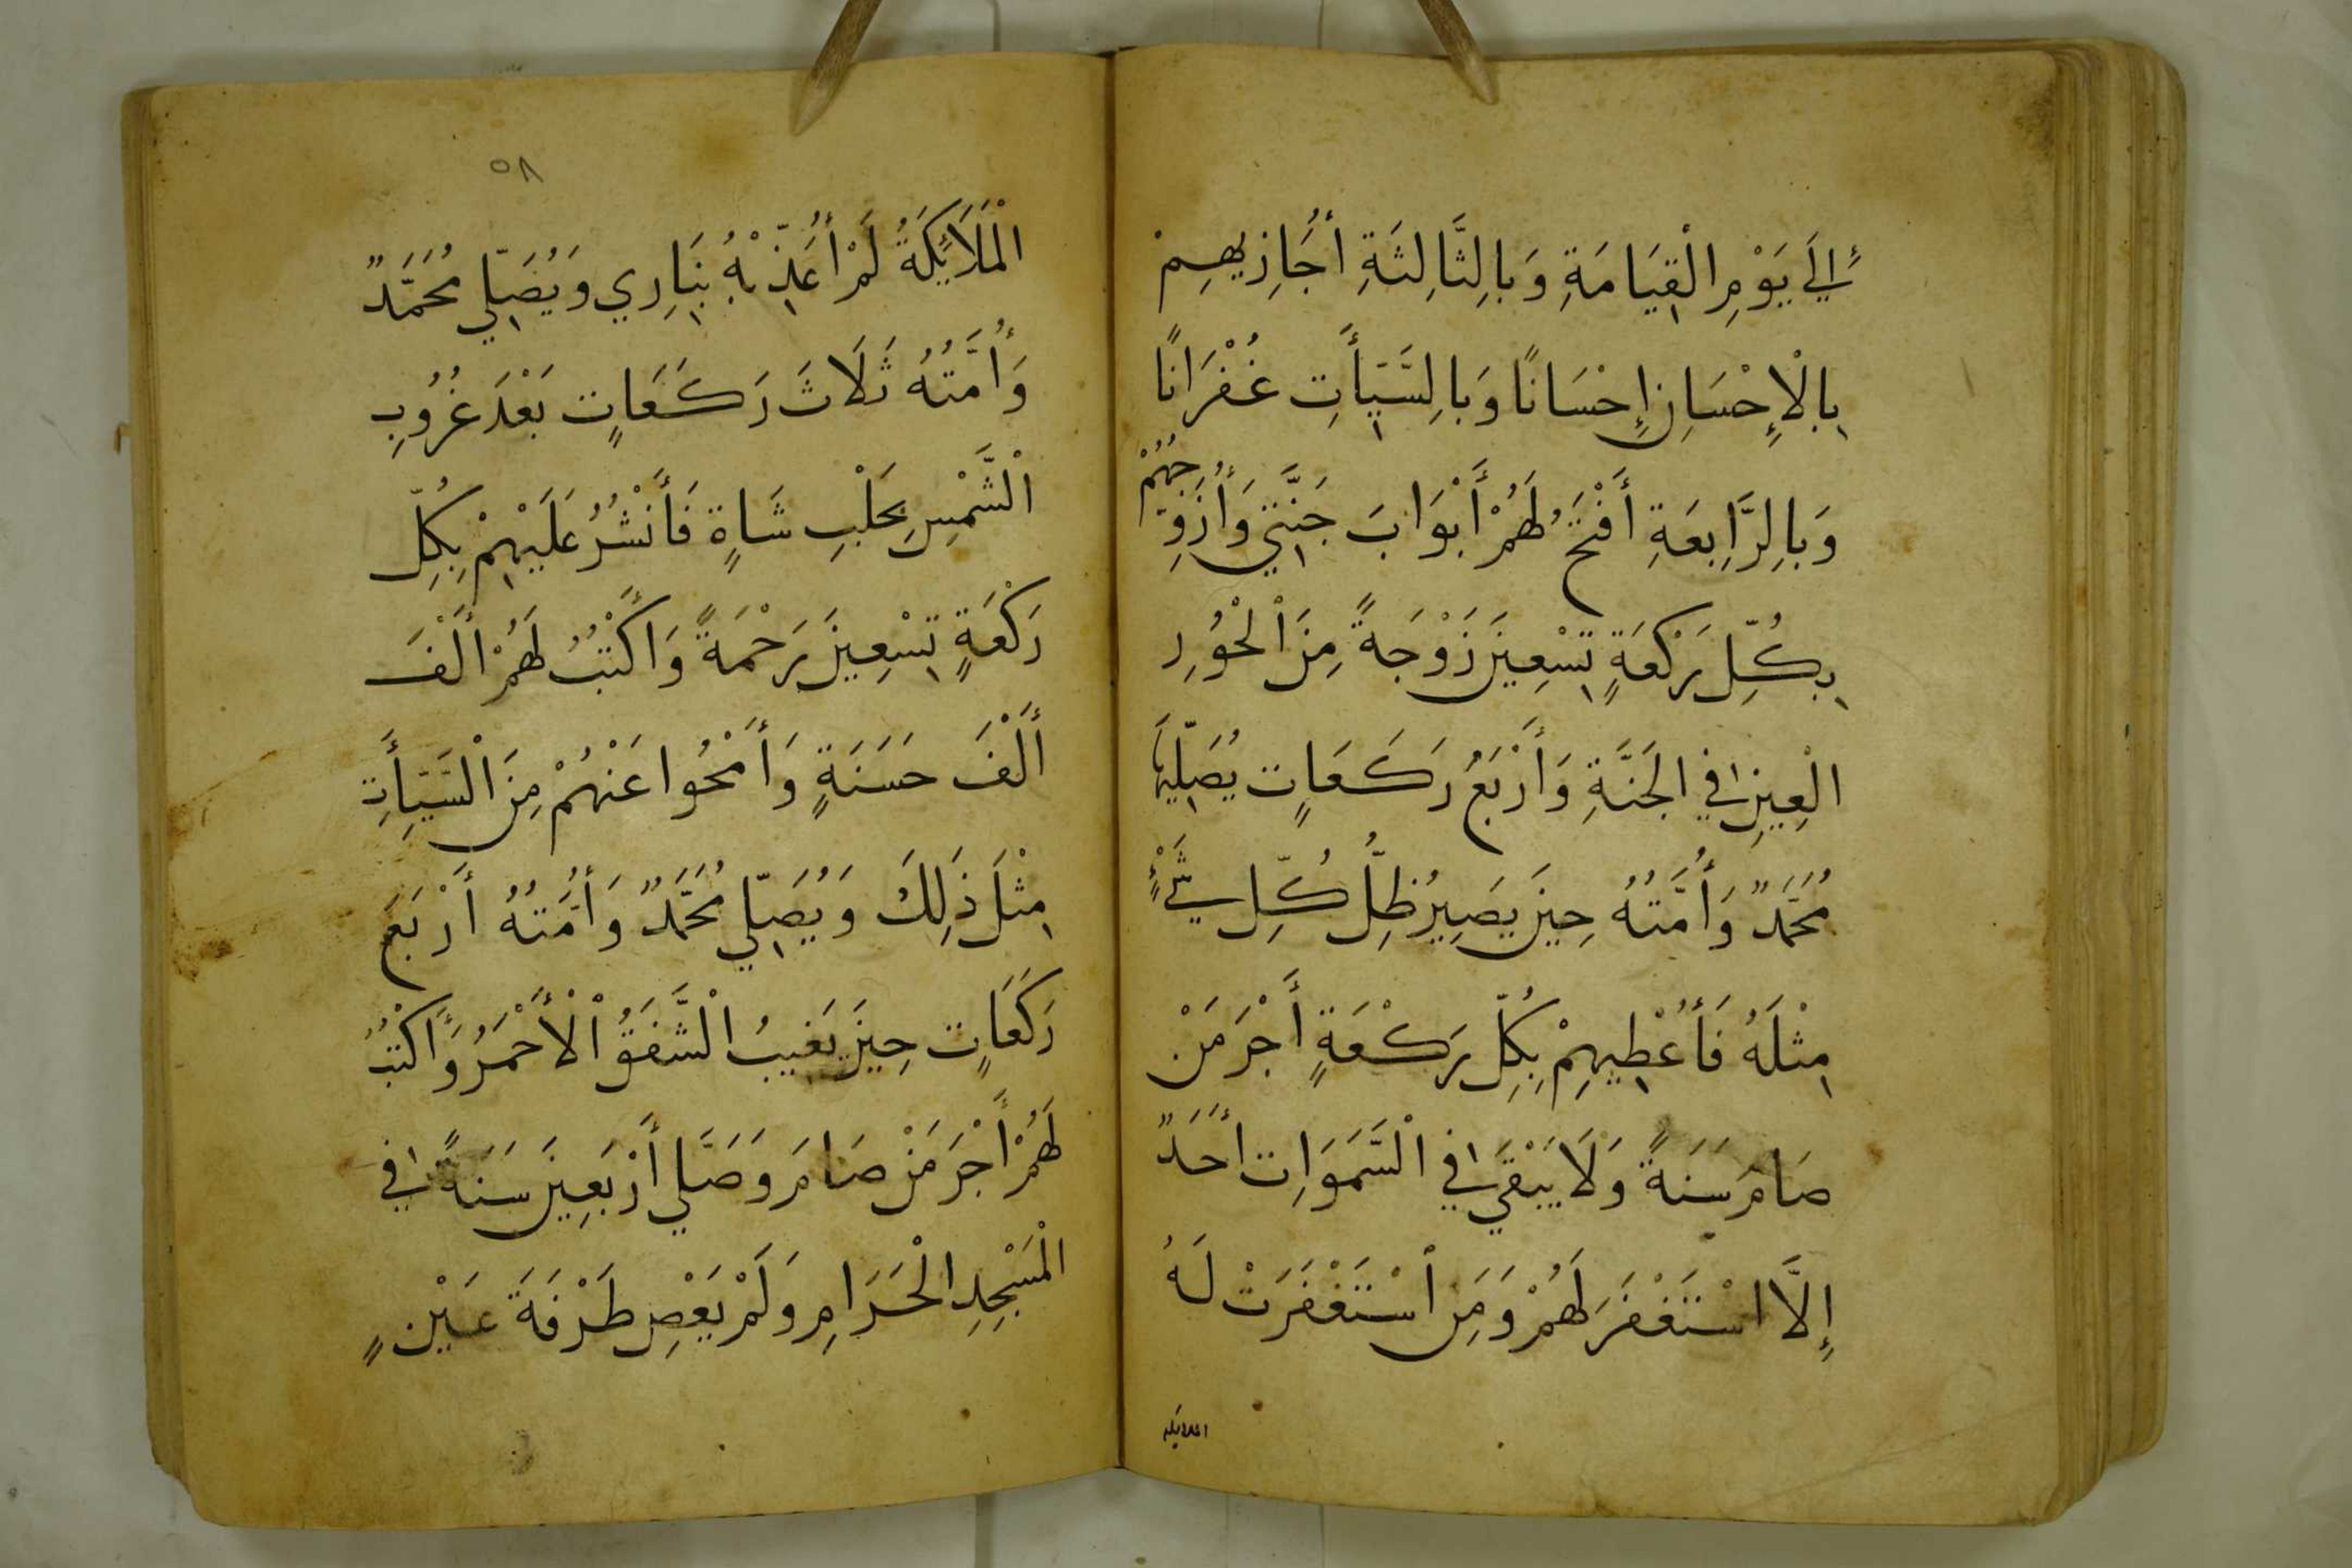 إِلَي يَوْمِ الْقِيَامَةِ وَبِالثَّالِثَةِ أُجَازِيهِمْ
بِالْإِحْسَانِ إِحْسَانًا وَبِالسَّيِّأَتِ غُفْرَانًا
وَبِالرَّابِعَةِ أَفْتَحُ لَهُمْ أَبْوَابَ جَنَّتِي وَأُزَوِّجُهُمْ
بِكُلِّ رَكْعَةٍ تِسْعِينَ زَوْجَةً مِنَ الْحُورِ
الْعِينِ فِي الْجَنَّةِ وَأَرْبَعُ رَكَعَاتٍ يُصَلِّيهَا
مُحَمَّدٌ وَأُمَّتُهُ حِينَ يَصِيرُ ظِلُّ كُلِّ شَيْءٍ
مِثْلَهُ فَأُعْطِيهِمْ بِكُلِّ رَكْعَةٍ أَجْرَ مَنْ
صَامَ سَنَةً وَلَا يَبْقَي فِي السَّمَوَاتِ أَحَدٌ
إِلَّا اسْتَغْفَرَ لَهُمْ وَمَنِ اسْتَغْفَرَتْ لَهُ
الملايكه
٥٨
الْمَلَايِٕكَةُ لَمْ أُعَذِّبْهُ بِنَارِي وَيُصَلِّي مُحَمَّدٌ
وَأُمَّتُهُ ثَلَاثَ رَكَعَاتٍ بَعْدَ غُرُوبِ
الْشَّمْسِ بِحَلْبِ شَاةٍ فَأَنْشُرُ عَلَيْهِمْ بِكُلِّ
رَكْعَةٍ تِسْعِينَ رَحْمَةً وَأَكْتُبُ لَهُمْ أَلْفَ
أَلْفَ حَسَنَةٍ وَأَمْحُوا عَنْهُمْ مِنَ الْسَّيِّأَتِ
مِثْلَ ذَلِكَ وَيُصَلِّي مُحَمَّدٌ وَأُمَّتُهُ أَرْبَعَ
رَكَعَاتٍ حِينَ يَغِيبُ الْشَّفَقُ الْأَحْمَرُ وَأَكْتُبُ
لَهُمْ أَجْرَ مَنْ صَامَ وَصَلَّي أَرْبَعِينَ سَنَةً فِي
الْمَسْجِدِ الْحَرَامِ وَلَمْ يَعْصِ طَرْفَةَ عَيْنٍ